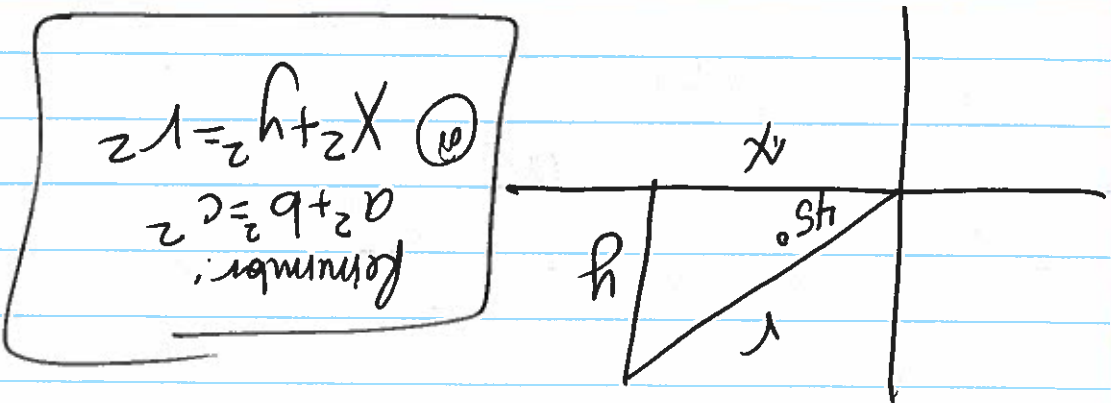 r
45°
y
x
Remember:
a²+b²=c²
or x²+y²=r²